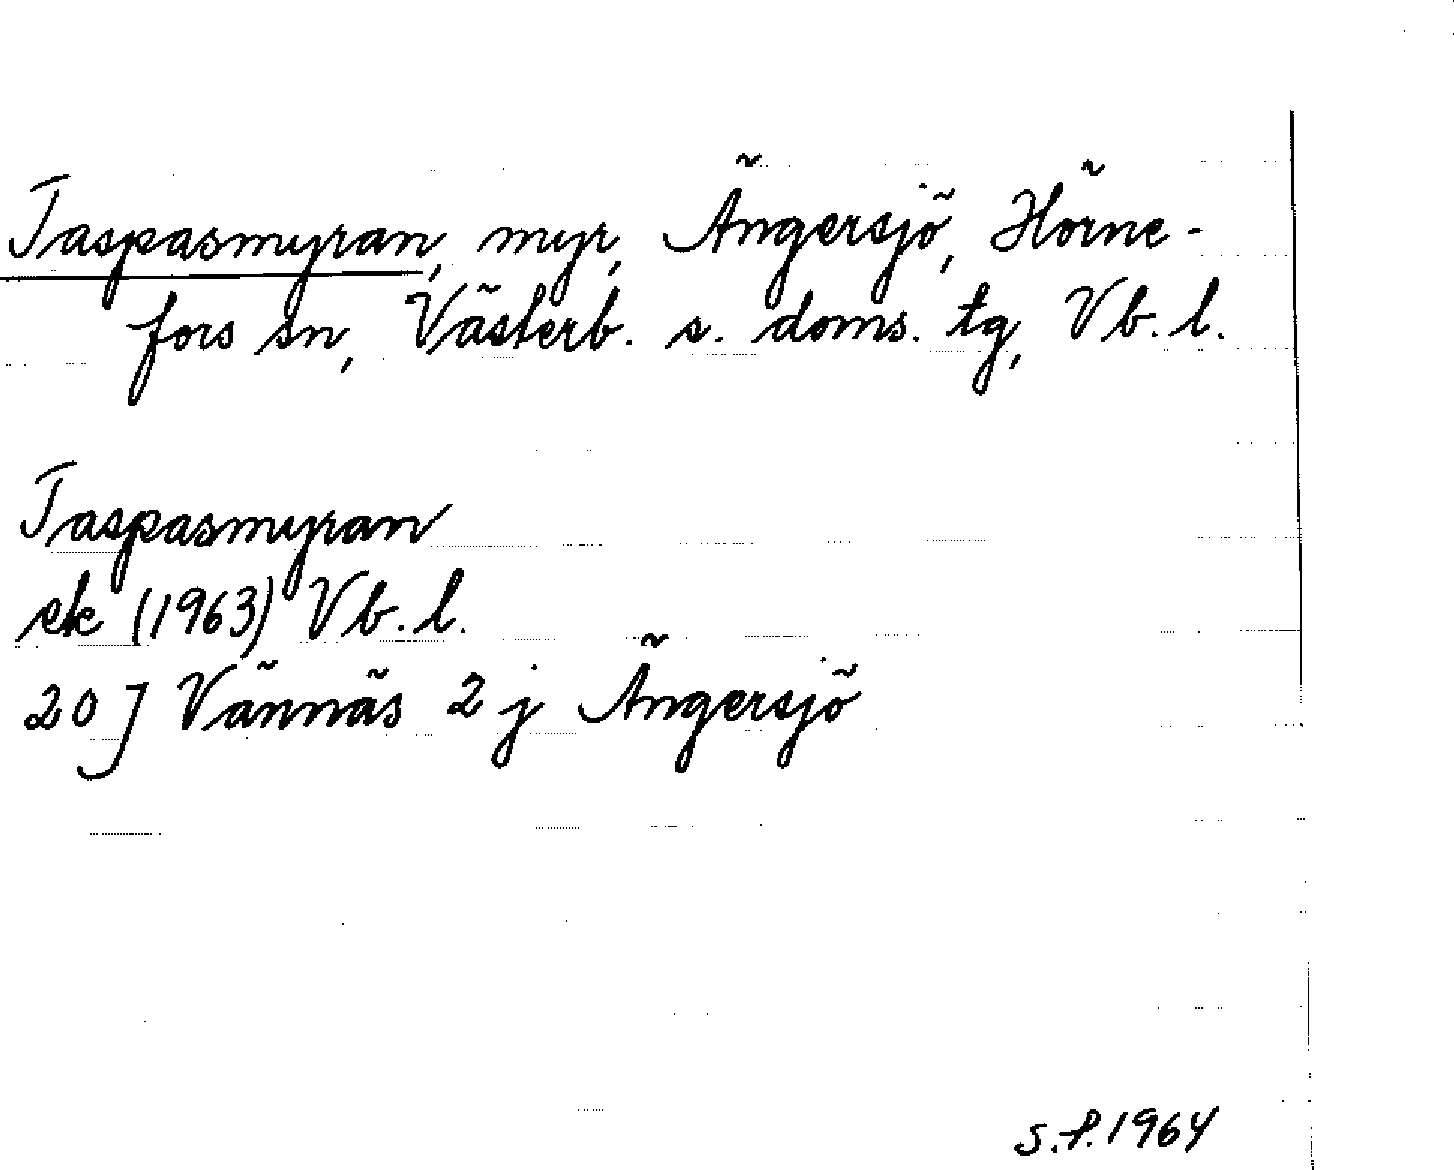 Taspasmyran, myr, Ängersjö, Hörne-
fors sn, Västerb. s. doms. tg, Vb. l.
Taspasmyran
ek (1963) Vb. l.
20 J Vännäs 2 j Ängersjö
S.f. 1964